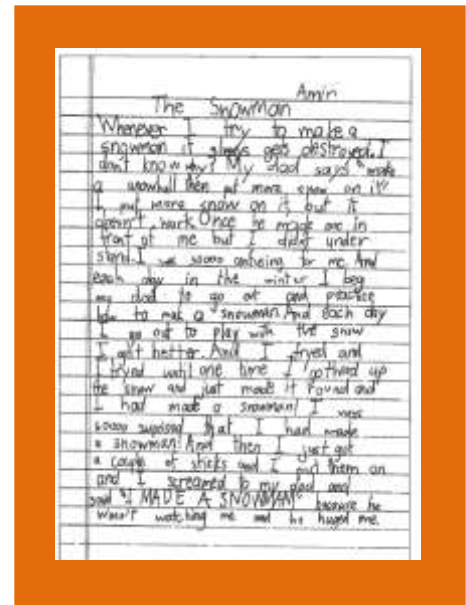 Amin
The Snowman
Whenever I try to make a
snowman it always gets destroyed. I
don't know why? My dad says "make
a snowball then put more snow on it."
I put more snow on it but it
doesn't work. Once he made one in
front of me but I didn't under
stand. I was soooo for me. And
each day in the wintur I beg
my dad to go ot and practice
how to mak a snowman. And each day
I go out to play with the snow
I got better. And I tryed and
I tryed until one time I up
the snow and just made it round and
I had made a snowman! I was
soooo that I had made
a snowman! And then I just got
a couple of sticks and I put them on
and I screamed to my dad and
said "I MADE A SNOWMAN" because he
wasn't watching me and he huged me.